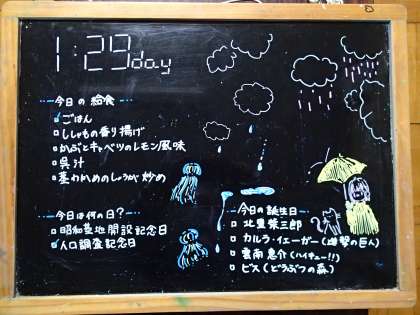 1:29day
今日の給食
ごはん
ししゃもの香り揚げ
かぶとキャベツのレモン風味
呉汁
茎わかめのしょうが炒め
今日は何の日?
昭和基地開設記念日
人口調査記念日
今日の誕生日
北里柴三郎
カルラ・イェーガー(進撃の巨人)
雲南恵介(ハイキュー!!)
ビス(どうぶつの森)